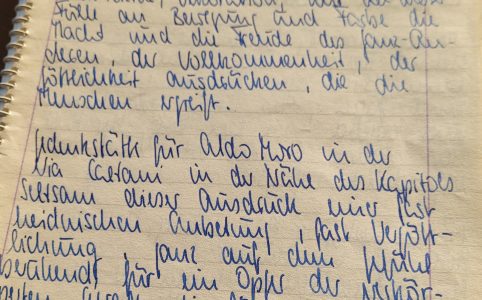 Fülle an Bewegung und Farbe die
Macht und die Freude des ganz An-
deren, der Vollkommenheit, der
Göttlichkeit ausdrücken, die die
Menschen ergreift.
Gedenkstätte für Aldo Moro in der
Via Caetani in der Nähe des Kapitols
seltsam dieser Ausdruck einer fast
heidnischen Anbetung, fast Vergött-
lichung, ganz auf dem Gefühl
beruhend, für ein Opfer der